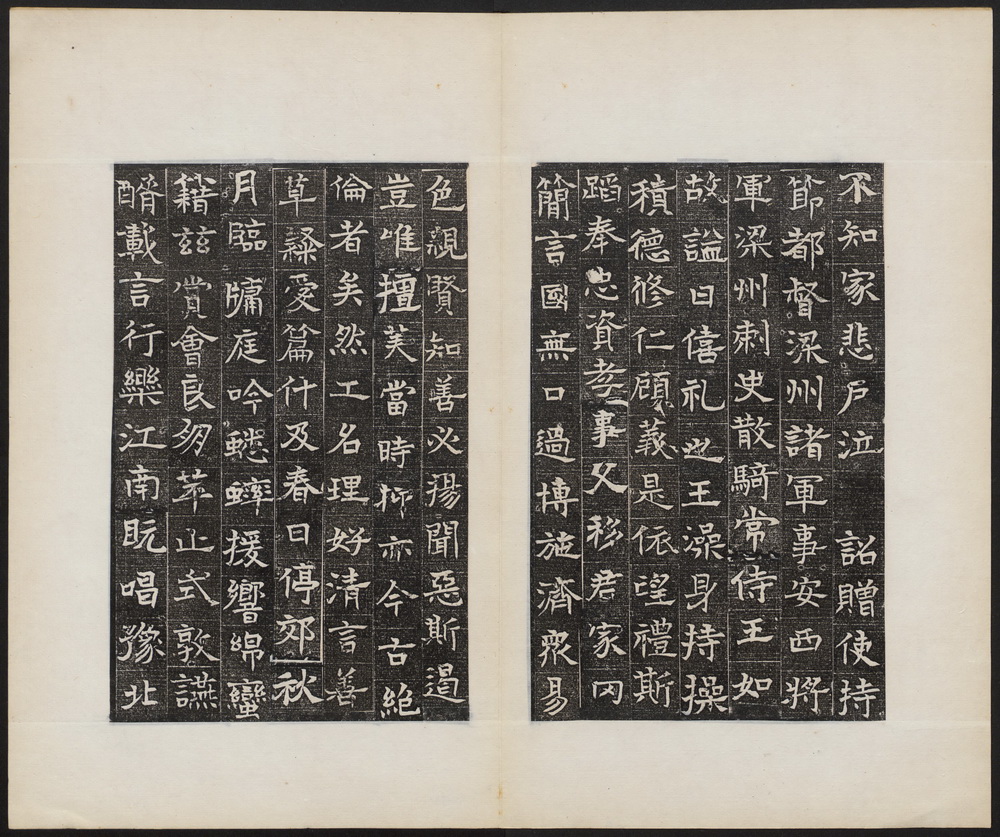 不知家悲户泣　詔贈使持
節都督梁州諸軍事安西將
軍梁州刺史散騎常侍王如
故謚曰僖礼也王澡身持操
積德脩仁顧義是依望禮斯
蹈奉忠資孝事父移君家罔
簡言國無口過博施濟衆易
色親賢知善必揚聞惡斯遏
豈唯擅美當時抑亦今古絶
倫者矣然工名理好清言善
草隸愛篇什及春日停郊秋
月臨牖庭吟蟋蟀援響綿蠻
籍兹賞會良朋萃止式敦讌
醑載言行樂江南既唱豫北